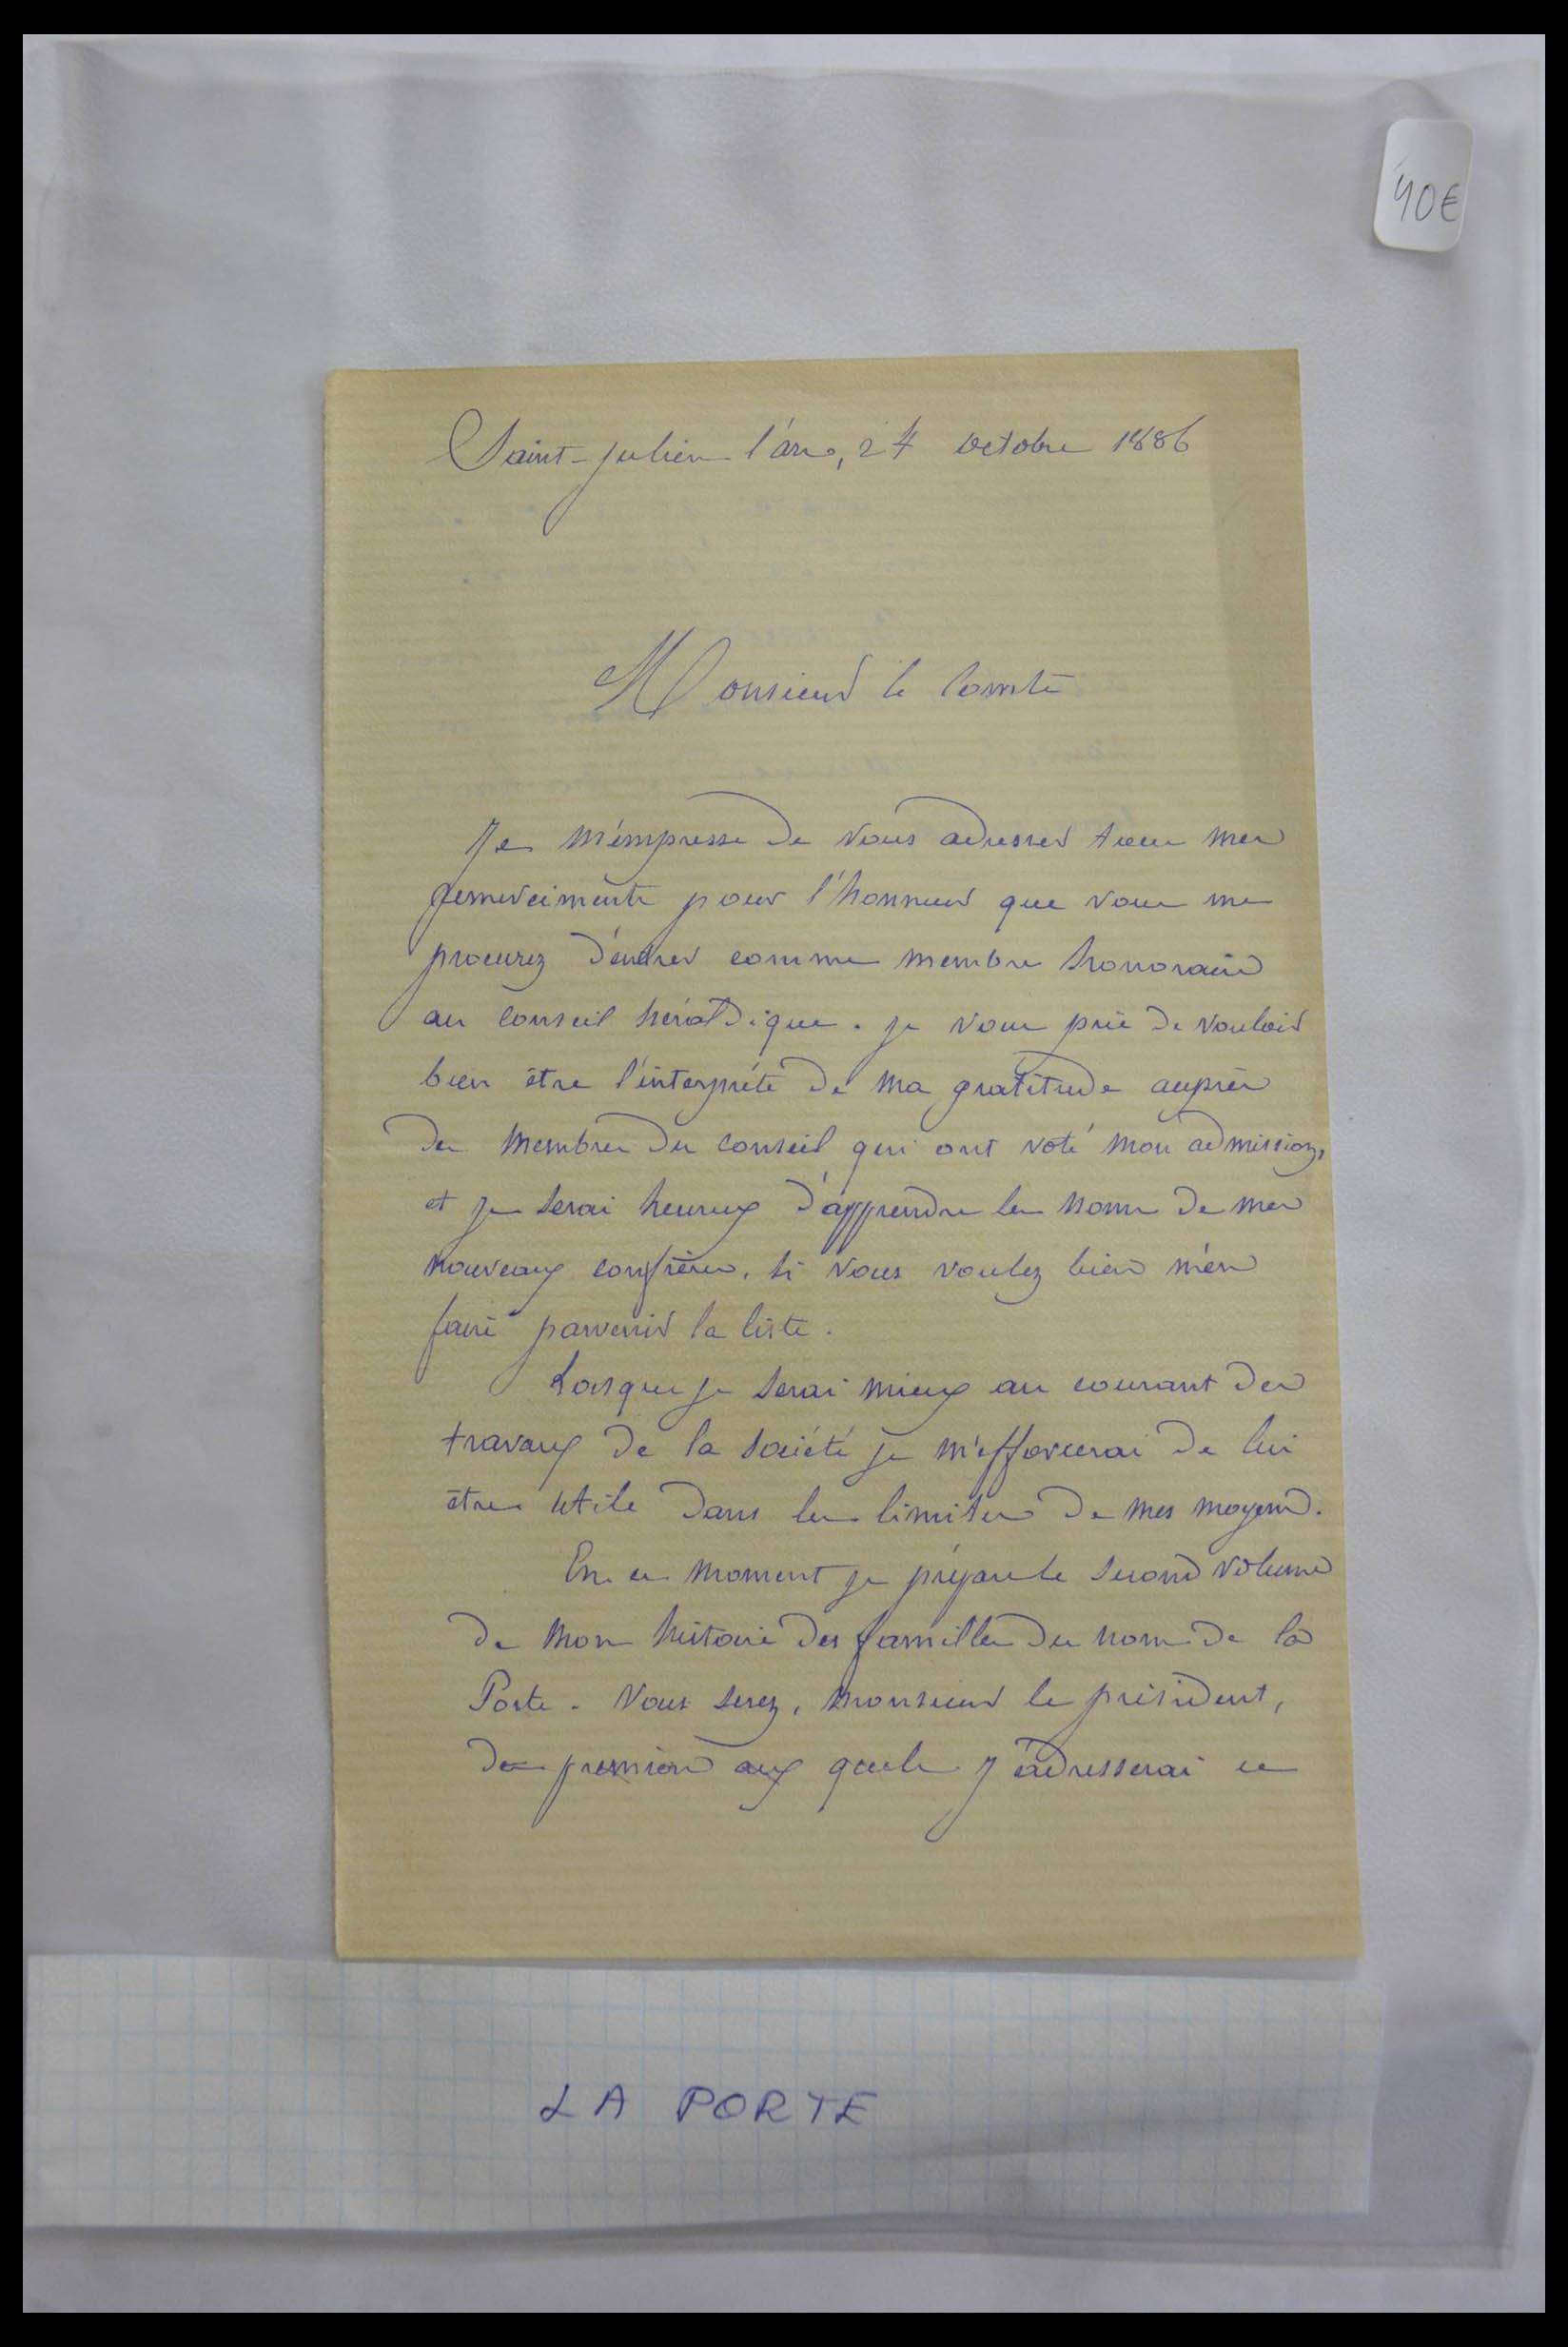 40€
Saint-Julien l'ars, 27 octobre 1886
Monsieur le Comte
Je m'empresse de vous adresser tous mes
remerciments pour l'honneur que vous me
procurez d'entrer comme membre honoraire
au conseil héraldique. je vous prie de vouloir
bien être l'interprète de ma gratitude auprès
des membres du conseil qui ont voté mon admission,
et je serai heureux d'apprendre les noms de mes
nouveaux confrères, si vous voulez bien m'en
faire parvenir la liste.
Lorsque je serai mieux au courant des
travaux de la société je m'efforcerai de lui
être utile dans les limites de mes moyens.
En ce moment je prépare le second volume
de mon histoire des familles du nom de la
Porte. Vous serez, monsieur le président,
des premiers aux quels j'adresserai ce
LA PORTE